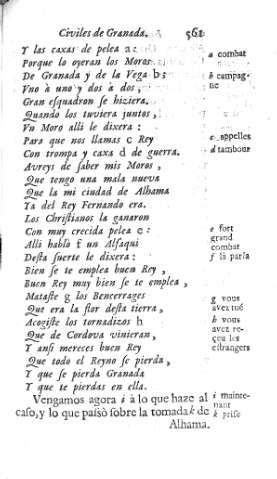 Civiles de Granada. 561
Y las caxas de pelea a: a combat
Porque lo oyeran los Moros
De Granada y de la Vega b; b campag-
Vno à uno y dos à dos, ne
Gran esquadron se hiziera.
Quando los tuviera juntos,
Vn Moro alli le dixera:
Para que nos llamas c Rey c appelles
Con trompa y caxa d de guerra. d tambour
Avreys de saber mis Moros,
Que tengo una mala nueva
Que la mi ciudad de Alhama
Ya del Rey Fernando era.
Los Christianos la ganaron
Con muy crecida pelea e: e fort
grand
Alli hablò f un Alfaqui combat
Desta suerte le dixera: f là parla
Bien se te emplea buen Rey,
Buen Rey muy bien se te emplea,
Mataste g los Bencerrages g vous
Que era la flor desta tierra, avez tué
Acogiste los tornadizos h h vous
avez re-
Que de Cordova vinieran, çeu les
Y ansi mereces buen Rey estrangers
Que todo el Reyno se pierda,
Y que se pierda Granada
Y que te pierdas en ella.
Vengamos agora i à lo que haze al i mainte-
nant
caso, y lo que passò sobre la tomada k de k prise
Alhama.